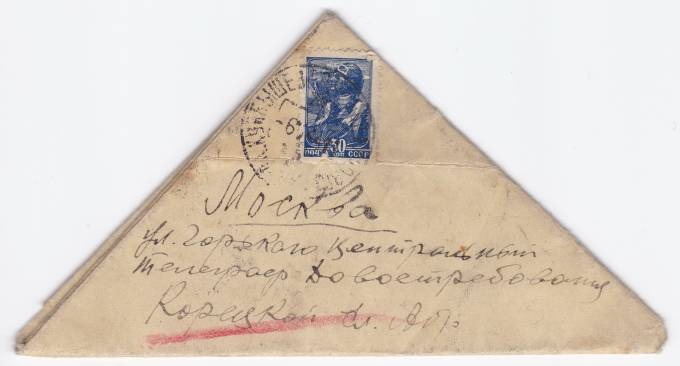 КУЙБЫШЕВ
30
ПОЧТА КОП СССР
Москва
ул. Горького Центральный
телеграф До востребования
Корецкой